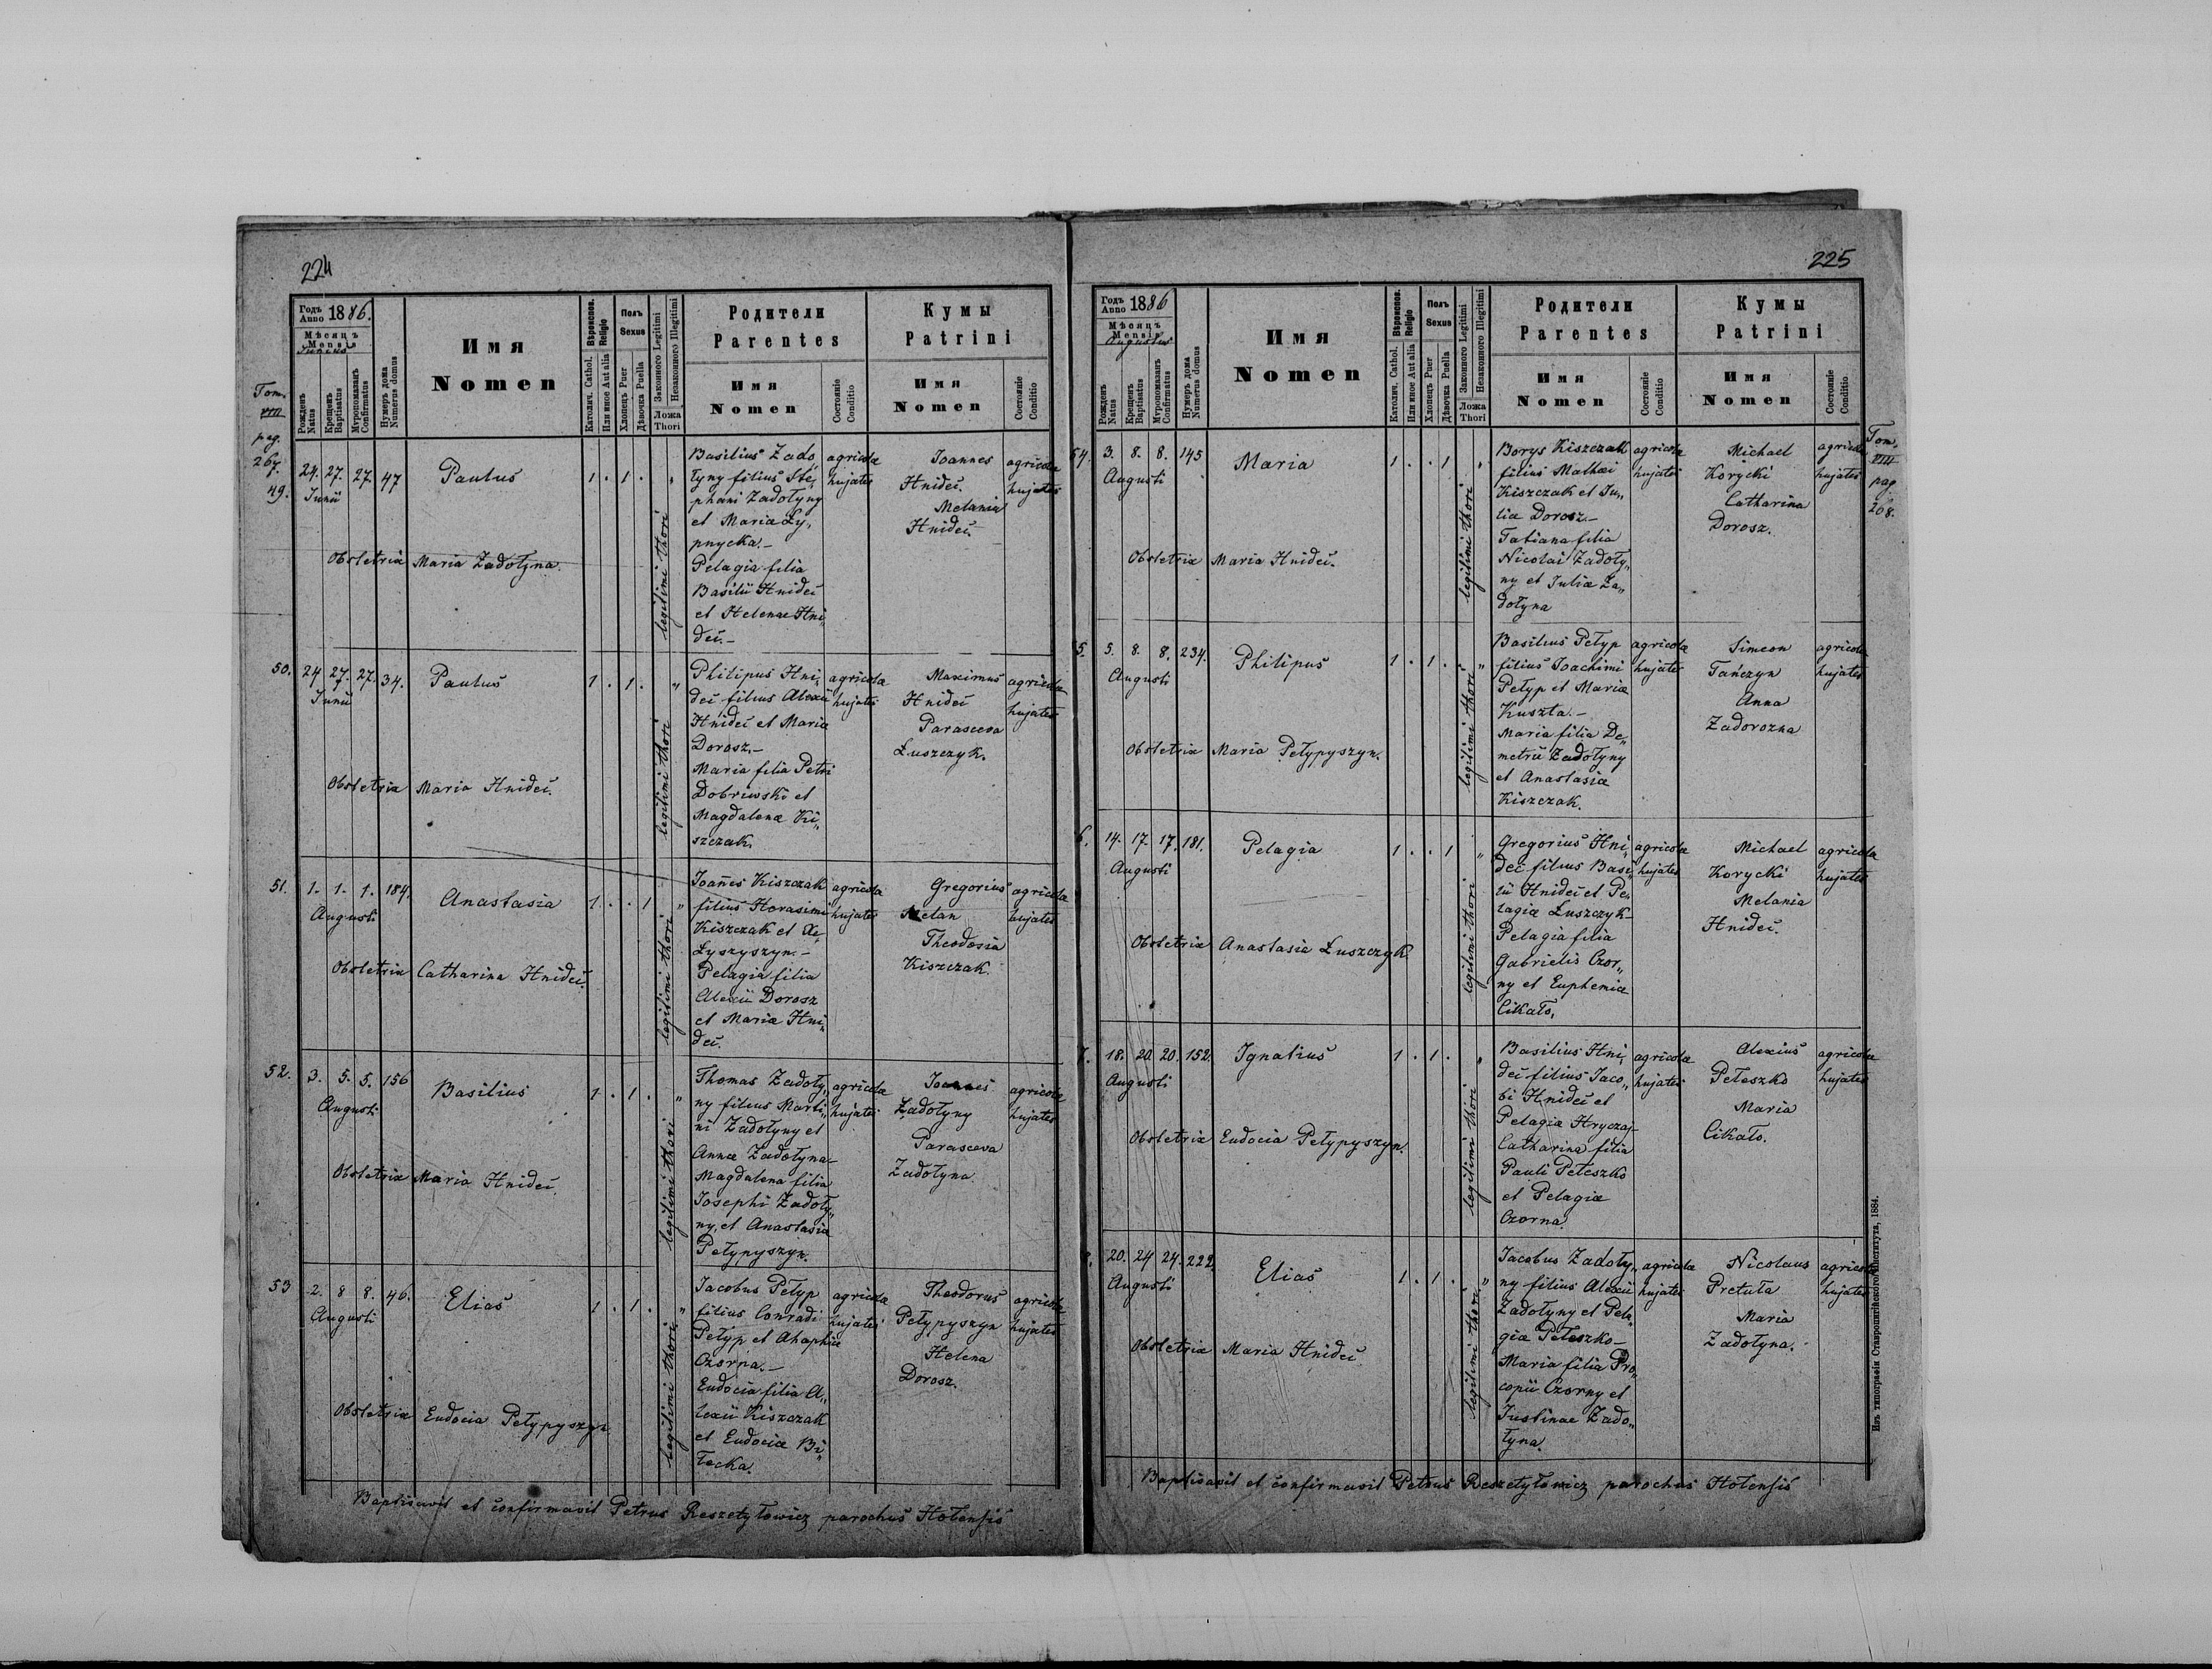 224
Годъ Anno 1886.
Мѣсяцъ Mensis
Junius
Рожденъ Natus
Крещенъ Baptisatus
Мѵропомазанъ Confirmatus
Нумеръ дома Numerus domus
Имя
Nomen
Вѣроиспов. Religio
Католич. Cathol.
Или иное Aut alia
Полъ Sexus
Хлопецъ Puer
Дѣвочка Puella
Законного Legitimi
Незаконного Illegitimi
Ложа Thori
Родители
Parentes
Имя
Nomen
Состояніе Conditio
Кумы
Patrini
Имя
Nomen
Состояніе Conditio
Tom.
VIII
pag.
267.
49. 24. 27. 27. 47 Paulus 1 . 1 .
Junii
Obstetrix Maria Zadołyna.
legitimi thori
Basilius Zado„
łyny filius Ste„
phani Zadołyny
et Maria Ły„
pnycka.–
Pelagia filia
Basilii Hnideć
et Helenae Hni„
deć.–
agricola
hujates
Joannes
Hnideć.
Melania
Hnideć.
agricola
hujates
50. 24 27. 27. 34. Paulus 1 . 1 . "
Junii
Obstetrix Maria Hnideć.
legitimi thori
Philipus Hni„
deć filius Alexii
Hnideć et Maria
Dorosz.–
Maria filia Petri
Dobriwski et
Magdalenæ Ki„
szczak.
agricola
hujates
Maximus
Hnideć
Parasceva
Łuszczyk.
agricola
hujates
51. 1. 1. 1. 184. Anastasia 1 . . 1 "
Augusti
Obstetrix Catharina Hnideć.
legitimi thori
Joañes Kiszczak
filius Herasimi
Kiszczak et Xe„
Łyszyszyn.–
Pelagia filia
Alexii Dorosz
et Mariæ Hni„
deć.
agricola
hujates
Gregorius
Melan
Theodosia
Kiszczak.
agricola
hujates
52. 3. 5. 5. 156 Basilius 1 . 1 . "
Augusti
Obstetrix Maria Hnideć.
legitimi thori
Thomas Zadoły„
ny filius Marti„
ni Zadołyny et
Annæ Zadołyna–
Magdalena filia
Josephi Zadoły„
ny, et Anastasia
Pełypyszyn.
agricola
hujates
Joannes
Zadołyny
Parasceva
Zadołyna.
agricola
hujates
53 2. 8 8. 46. Elias 1 . 1 . "
Augusti
Obstetrix Eudocia Pełypyszyn
legitimi thori
Jacobus Pełyp
filius Conradi
Pełyp et Ahaphiæ
Czorna.–
Eudocia filia A„
lexii Kiszczak
et Eudociæ Bi„
łecka.
agricola
hujates
Theodorus
Pełypyszyn
Helena
Dorosz.
agricola
hujates
Baptisavit et confirmavit Petrus Reszetyłowicz parochus Hołensis
225
Годъ Anno 1886
Мѣсяцъ Mensis
Augustus
Рожденъ Natus
Крещенъ Baptisatus
Мѵропомазанъ Confirmatus
Нумеръ дома Numerus domus
Имя
Nomen
Вѣроиспов. Religio
Католич. Cathol.
Или иное Aut alia
Полъ Sexus
Хлопецъ Puer
Дѣвочка Puella
Законного Legitimi
Незаконного Illegitimi
Ложа Thori
Родители
Parentes
Имя
Nomen
Состояніе Conditio
Кумы
Patrini
Имя
Nomen
Состояніе Conditio
Tom.
VIII
pag
208.
54. 3. 8. 8. 145 Maria 1 . . 1 "
Augusti
Obstetrix Maria Hnideć.
legitimi thori
Borys Kiszczak
filius Mathæi
Kiszczak et Ju„
liæ Dorosz.–
Tatiana filia
Nicolai Zadoły„
ny et Juliæ Za„
dołyna
agricola
hujates
Michael
Korycki
Catharina
Dorosz.
agricola
hujates
5. 5. 8. 8. 234. Philipus 1 . 1 . "
Augusti
Obstetrix Maria Pełypyszyn.
legitimi thori
Basilius Pełyp
filius Joachimi
Pełyp et Mariæ
Kuszta.–
Maria filia De„
metrii Zadołyny
et Anastasiæ
Kiszczak.
agricola
hujates
Simeon
Tańczyn
Anna
Zadorozna
agricola
hujates
6. 14. 17. 17. 181. Pelagia 1 . . 1 "
Augusti
Obstetrix Anastasia Łuszczyk.
legitimi thori
Gregorius Hni„
deć filius Basi„
lii Hnideć et Pe„
lagiæ Łuszczyk–
Pelagia filia
Gabrielis Czor„
ny et Euphemiæ
Cikało.
agricola
hujates
Michael
Korycki
Melania
Hnideć.
agricola
hujates
7. 18. 20. 20. 152. Ignatius 1 . 1 . "
Augusti
Obstetrix Eudocia Pełypyszyn.
legitimi thori
Basilius Hni„
deć filius Jaco„
bi Hnideć et
Pelagiæ Hryczaj–
Catharina filia
Pauli Peteszko
et Pelagiæ
Czorna.
agricola
hujates
Alexius
Peteszko
Maria
Cikało.
agricola
hujates
8. 20. 24 24. 222. Elias 1 . 1 . "
Augusti
Obstetrix Maria Hnideć
legitimi thori
Jacobus Zadoły„
ny filius Alexii
Zadołyny et Pela„
giæ Peteszko–
Maria filia Pro„
copii Czorny et
Justinae Zado„
łyna.
agricola
hujates
Nicolaus
Pretuła
Maria
Zadołyna.
agricola
hujates
Baptisavit et confirmavit Petrus Reszetyłowicz parochus Hołensis
Изъ типографіи Ставропигійского Института, 1884.